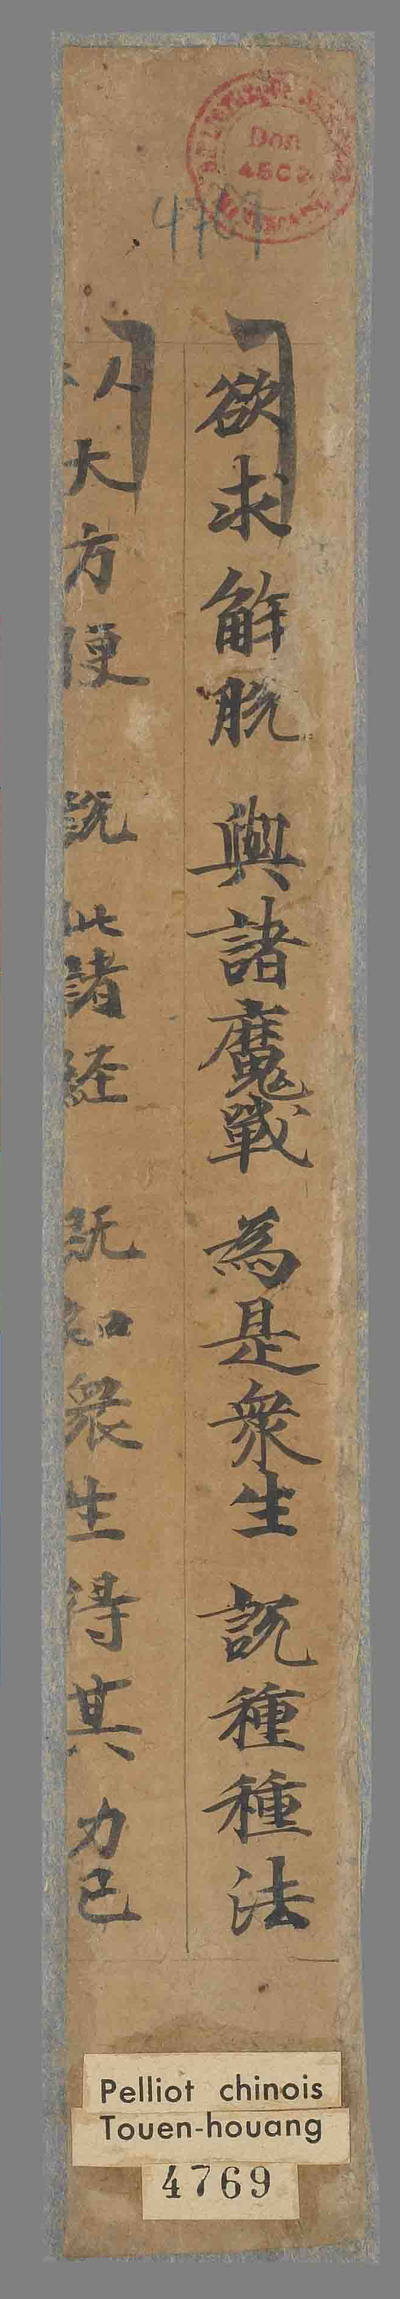 欲求解脱 與諸魔戰 為是衆生 説種種法
以大方便 説此諸経 既知衆生 得其力已
4769
Don
4502
Pelliot chinois
Touen-houang
4769